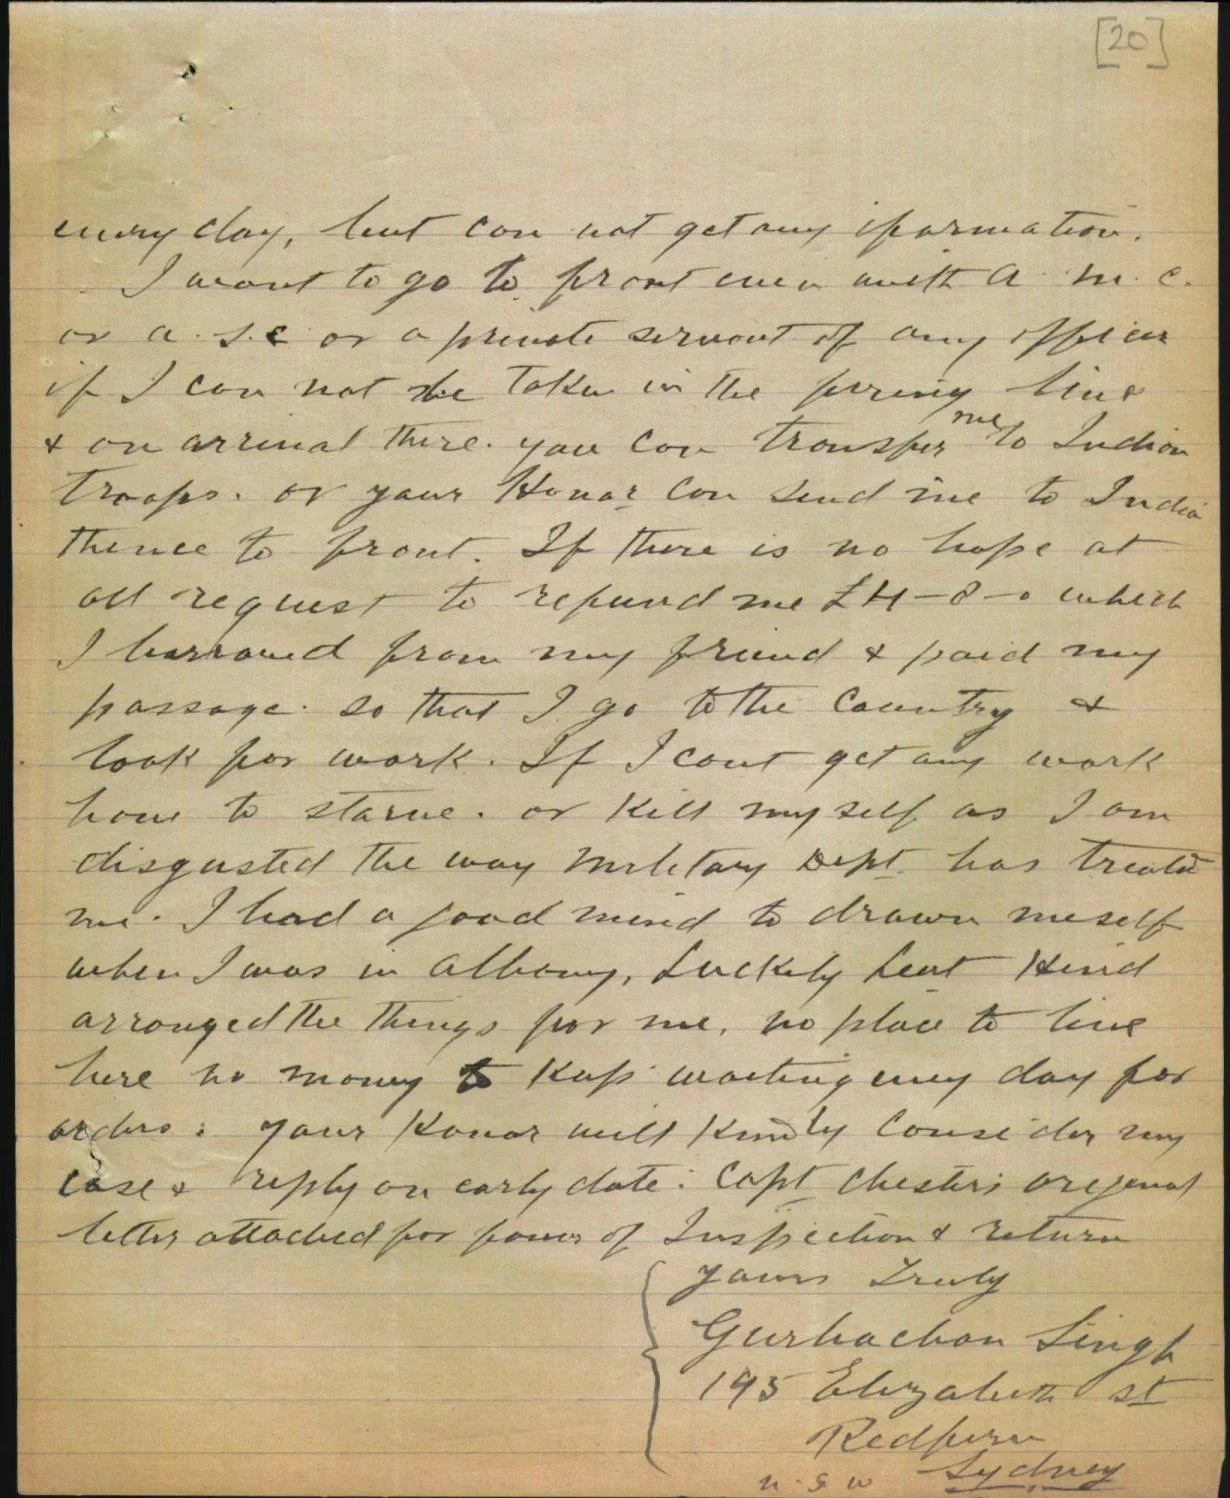 [20]
every day, but can not get any iformation.
I want to go to front even with A. M. C.
or A. S. C or a private servant of any officer
if I can not be taken in the firring line
& on arrival there. you can transfer me to Indian
Troops. or your Honor can send me to India
thence to front. If there is no hope at
all request to refund me £4-8-0 which
I borrowed from my friend & paid my
passage. so that I go to the Country &
look for work. If I cant get any work
have to starve. or Kill my self as I am
disgusted the way Miletary Dept. has treated
me. I had a good mind to drawn meself
when I was in Albany, Luckily Leut Hind
arranged the things for me. no place to live
here no money to Keep waiting every day for
orders: your Honor will Kindly Consider my
case & reply on early date: Capt Chester's oregenal
letter attached for favour of Inspection & return
yours Truly
Gurbachan Singh
195 Elizabeth st
Redfern
N. S W Sydney